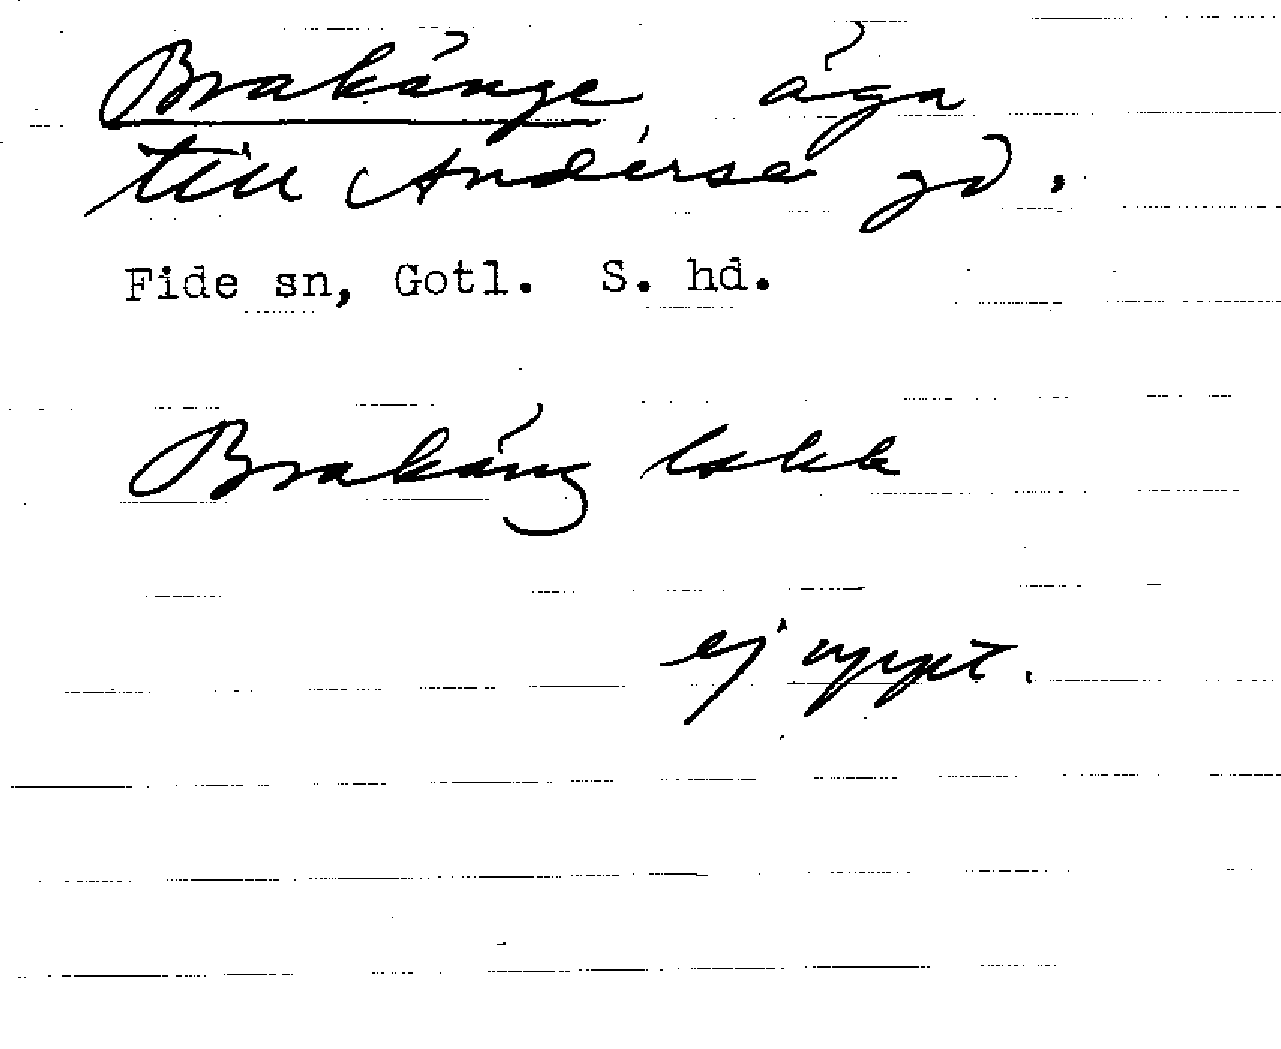 Brakänge äga
till Anderse gd.
Fide sn, Gotl. S. hd.
Brakäng lskk
ej uppt.